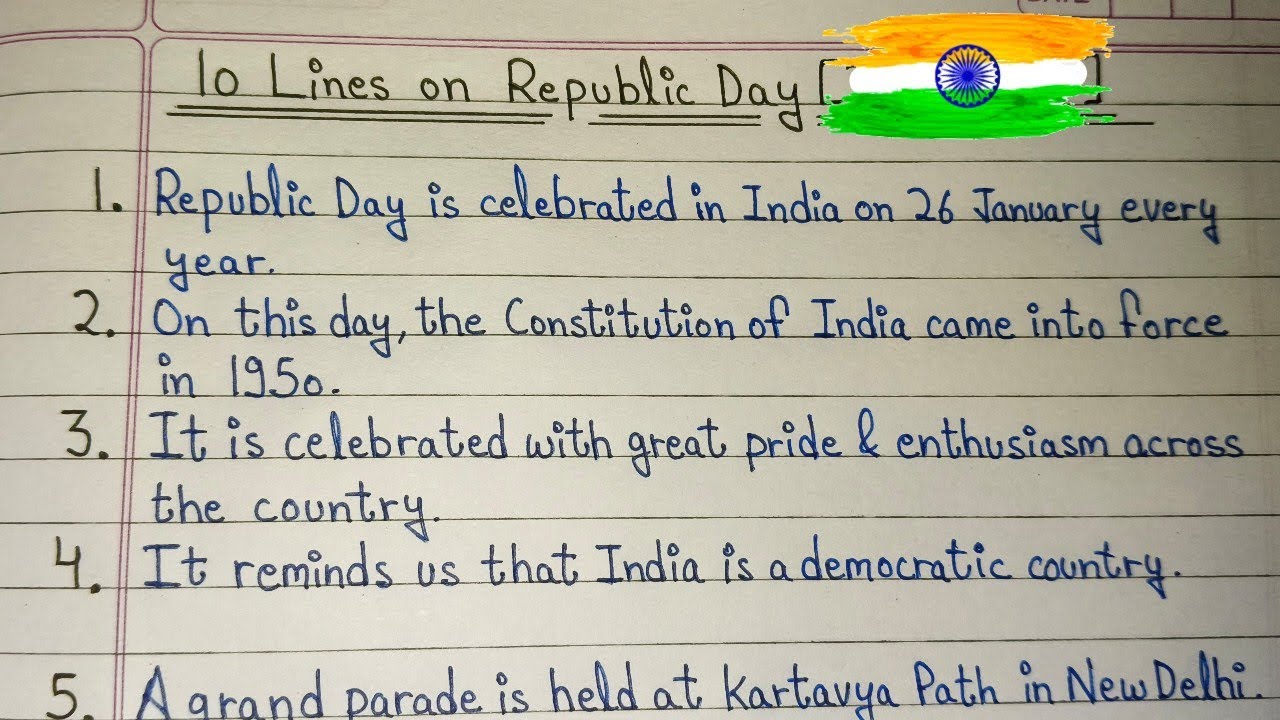 10 Lines on Republic Day [ ]
1. Republic Day is celebrated in India on 26 January every
year.
2. On this day, the Constitution of India came into force
in 1950.
3. It is celebrated with great pride & enthusiasm across
the country.
4. It reminds us that India is a democratic country.
5. A grand parade is held at Kartavya Path in New Delhi.